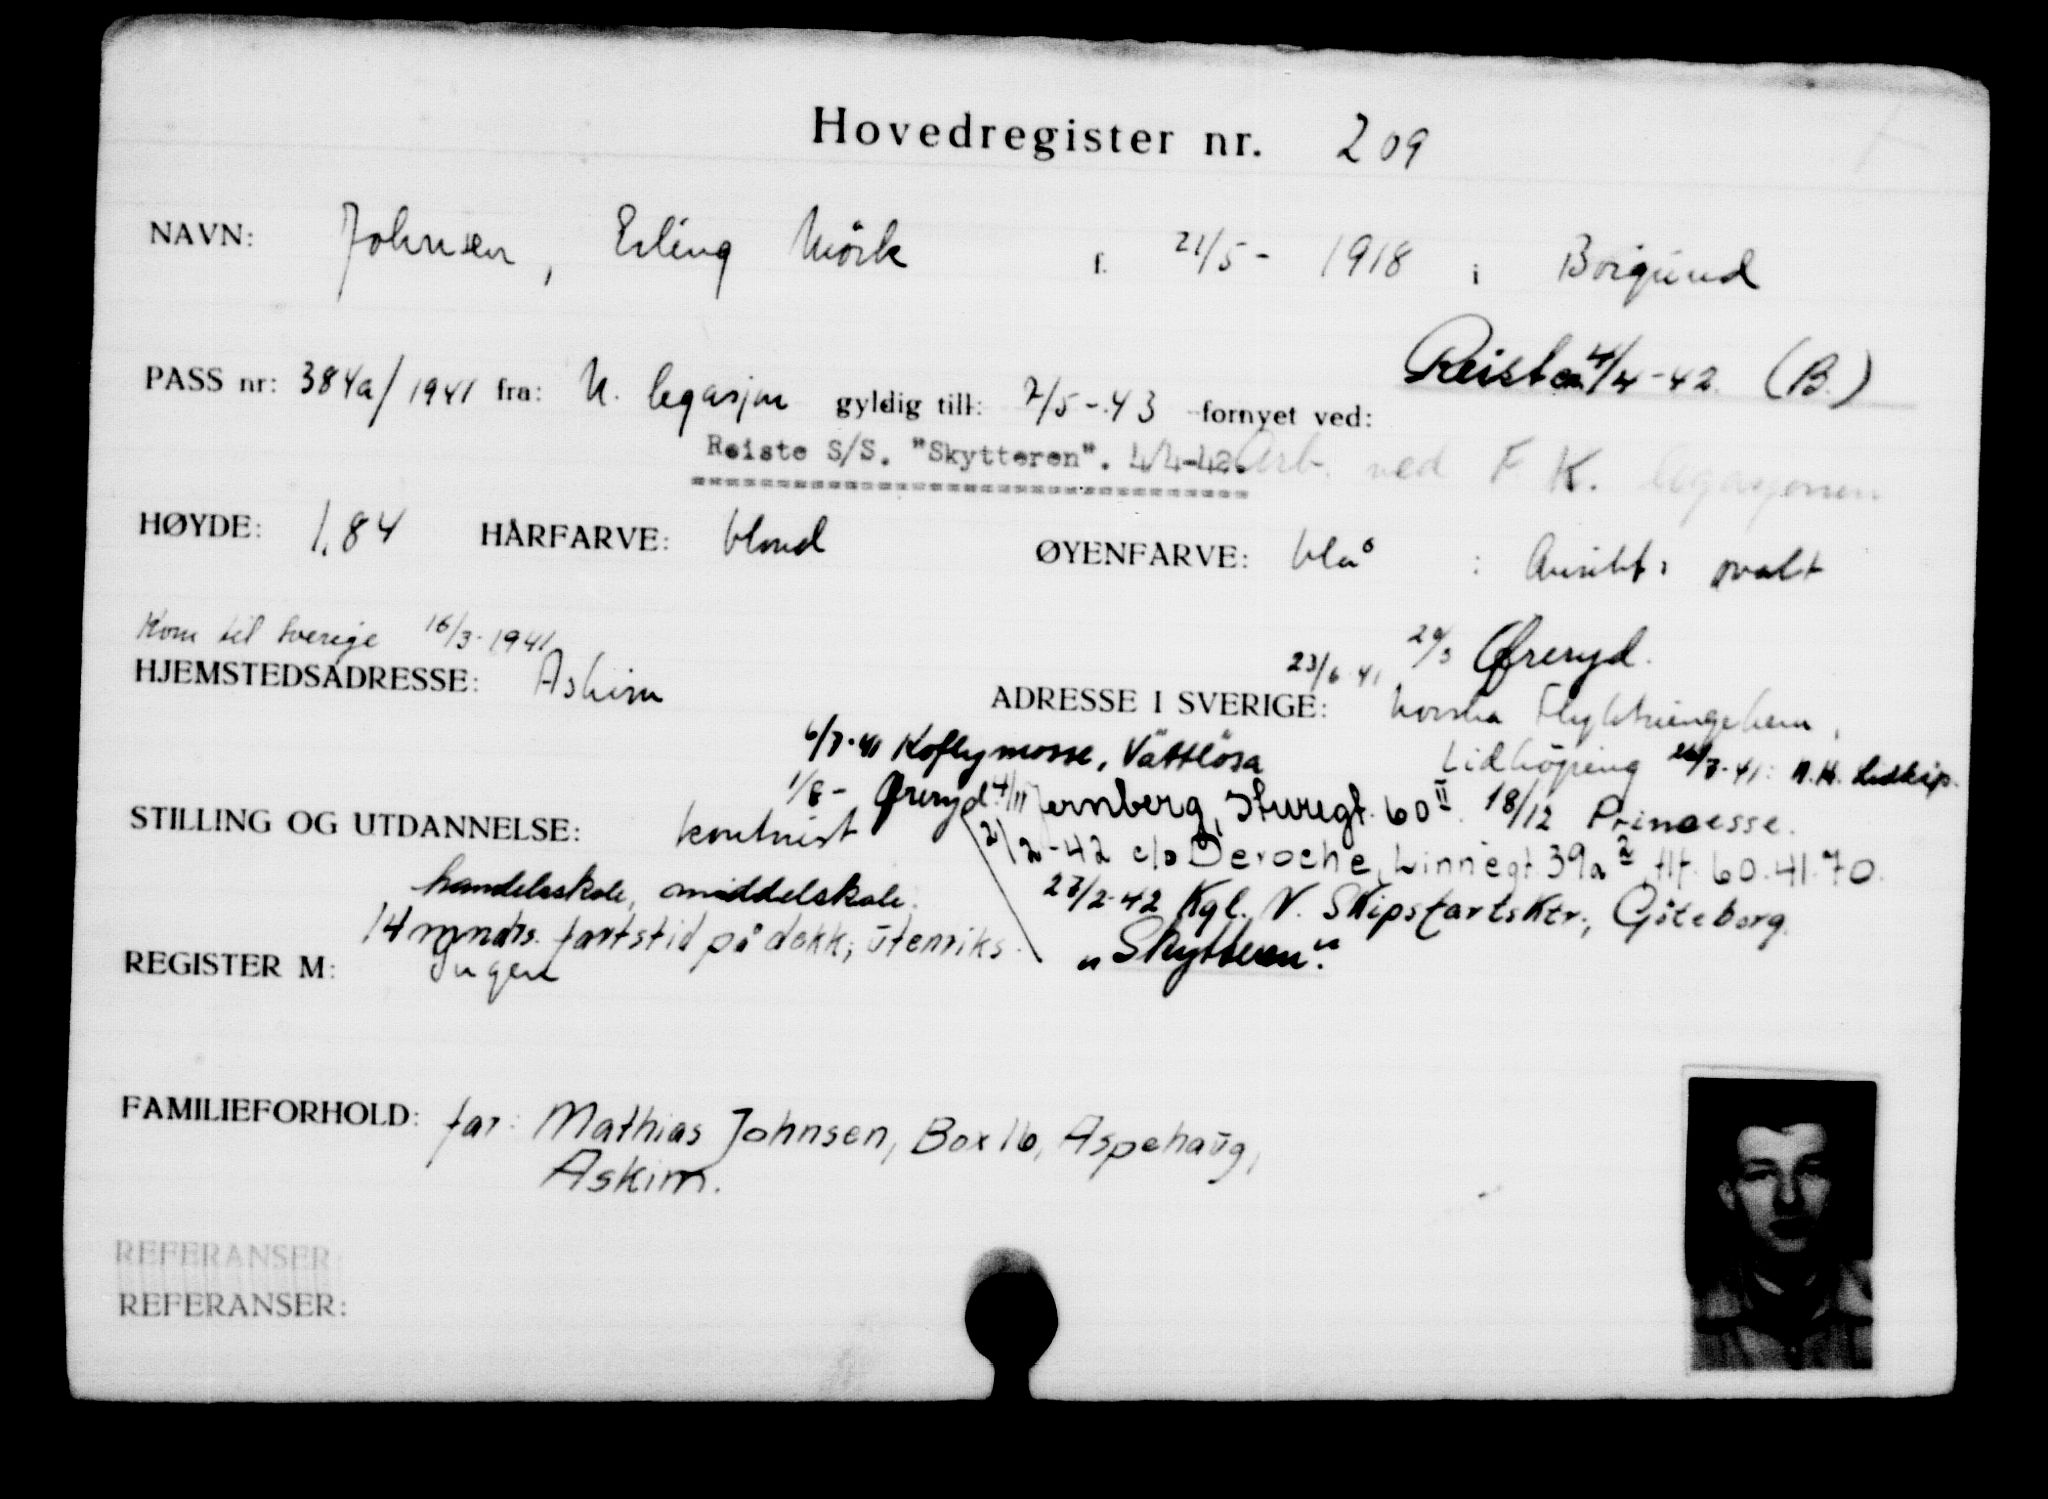 Hovedregister nr. 209
NAVN: Johnsen, Erling Mörk f. 21/5 - 1918 i Borgund
Reiste 4/4-42. (B.)
PASS nr: 384a/1941 fra: N. legasjon gyldig till: 2/5-43 fornyet ved:
Reiste S/S. "Skytteren". 4/4-42. Arb. ved F. K. legasjonen
HØYDE: 1,84 HÅRFARVE: blond ØYENFARVE: blå : Ansikt: ovalt
Kom til Sverige 16/3-1941 29/3 Øreryd.
HJEMSTEDSADRESSE: Askim ADRESSE I SVERIGE: 23/6 41 Norska Flyktningehem,
6/7-41 Koflymosse, Vättlösa Lidköping 26/7-41: N.H. Lidköp.
1/8- Øreryd. 4/11 Jernberg, Sturegt. 60 II. 18/12 Prinsesse.
STILLING OG UTDANNELSE: kontorist 2/2-42 c/o Deroche, Linnégt 39a 2 tlf. 60.41.70.
handelsskole, middelskole. 27/2-42 Kgl. N. Skipsfartsktr., Göteborg.
14 mndrs. fartstid på dekk, utenriks. "Skytteren".
REGISTER M: Ingen
FAMILIEFORHOLD: far: Mathias Johnsen, Box 16, Aspehaug,
Askim.
REFERANSER
REFERANSER: